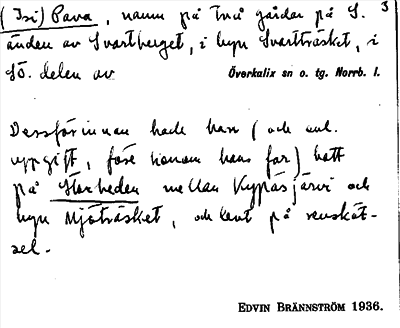 (Isi) Pava, namn på två gårdar på S. 3
änden av Svartberget, i byn Svartträsket, i
SÖ. delen av Överkalix sn o. tg. Norrb. l.
Dessförinnan hade han (och enl.
uppgift, före honom hans far) bott
på Storheden mellan Kypäsjärvi och
byn Mjöträsket, och levt på rensköt-
sel.
EDVIN BRÄNNSTRÖM 1936.